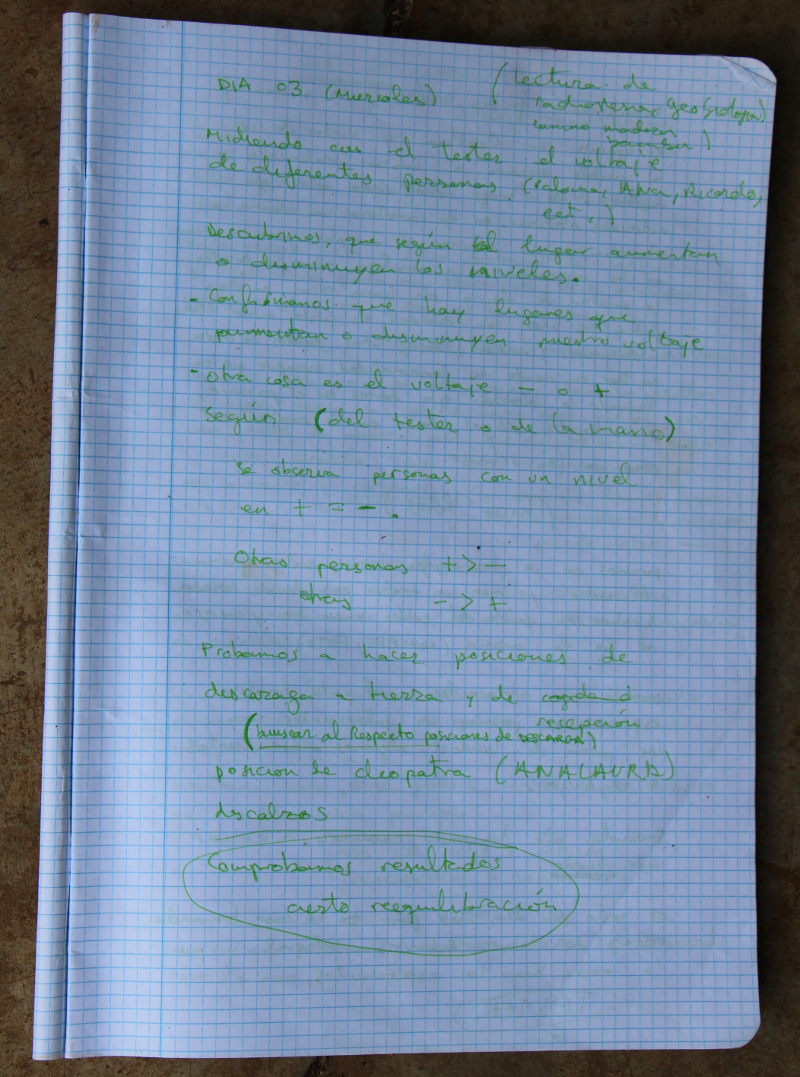 DIA 03 (Miercoles)
(lectura de
radiestesia, geobiologia)
bambu)
Midiendo con el tester el voltaje
de diferentes personas. (Paloma, ANA, Ricardo,
ect.)
Descubrimos, que según el lugar aumentan
o disminuyen los niveles.
- Confirmanos que hay lugares que
aumentan o disminuyen nuestro voltaje
- otra cosa es el voltaje - o +
según (del tester o de la mano)
se observa personas con un nivel
en + = - .
Otras personas + > -
otras - > +
Probamos a hacer posiciones de
descarga a tierra y de cogida o
recepción
(buscar al Respecto posiciones de DESCARGA)
posicion de cleopatra (ANALAURA)
descalzos
Comprobamos resultados
cierto reequilibración